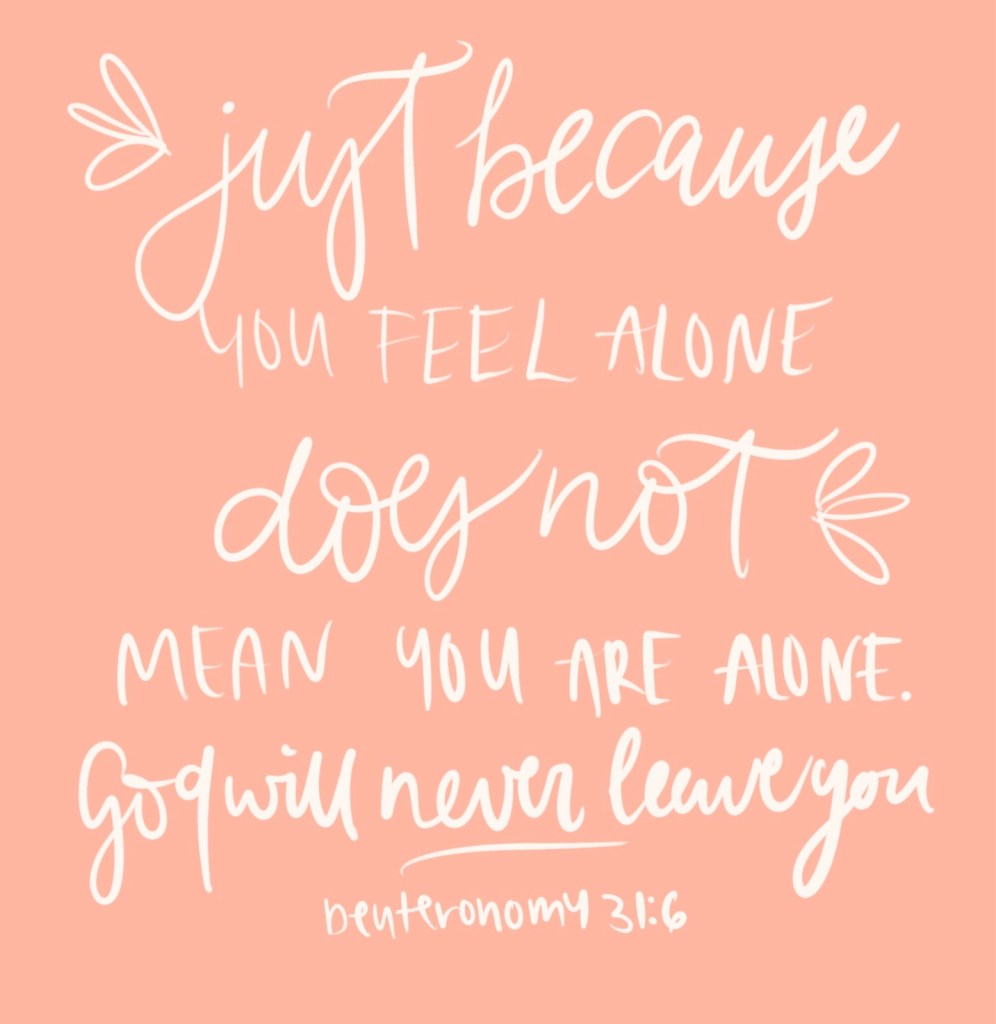 just because
YOU FEEL ALONE
does not
MEAN YOU ARE ALONE.
God will never leave you
deuteronomy 31:6